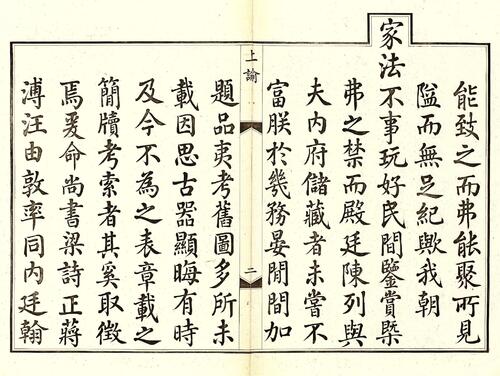 能致之而弗能聚所見
隘而無足紀歟我朝
家法不事玩好民間鑒賞槩
弗之禁而殿廷陳列與
夫內府儲藏者未嘗不
富朕於幾務晏閒間加
上諭
二
題品夷考舊圖多所未
載因思古器顯晦有時
及今不為之表章載之
簡牘考索者其奚取徴
焉爰命尚書梁詩正蔣
溥汪由敦率同內廷翰